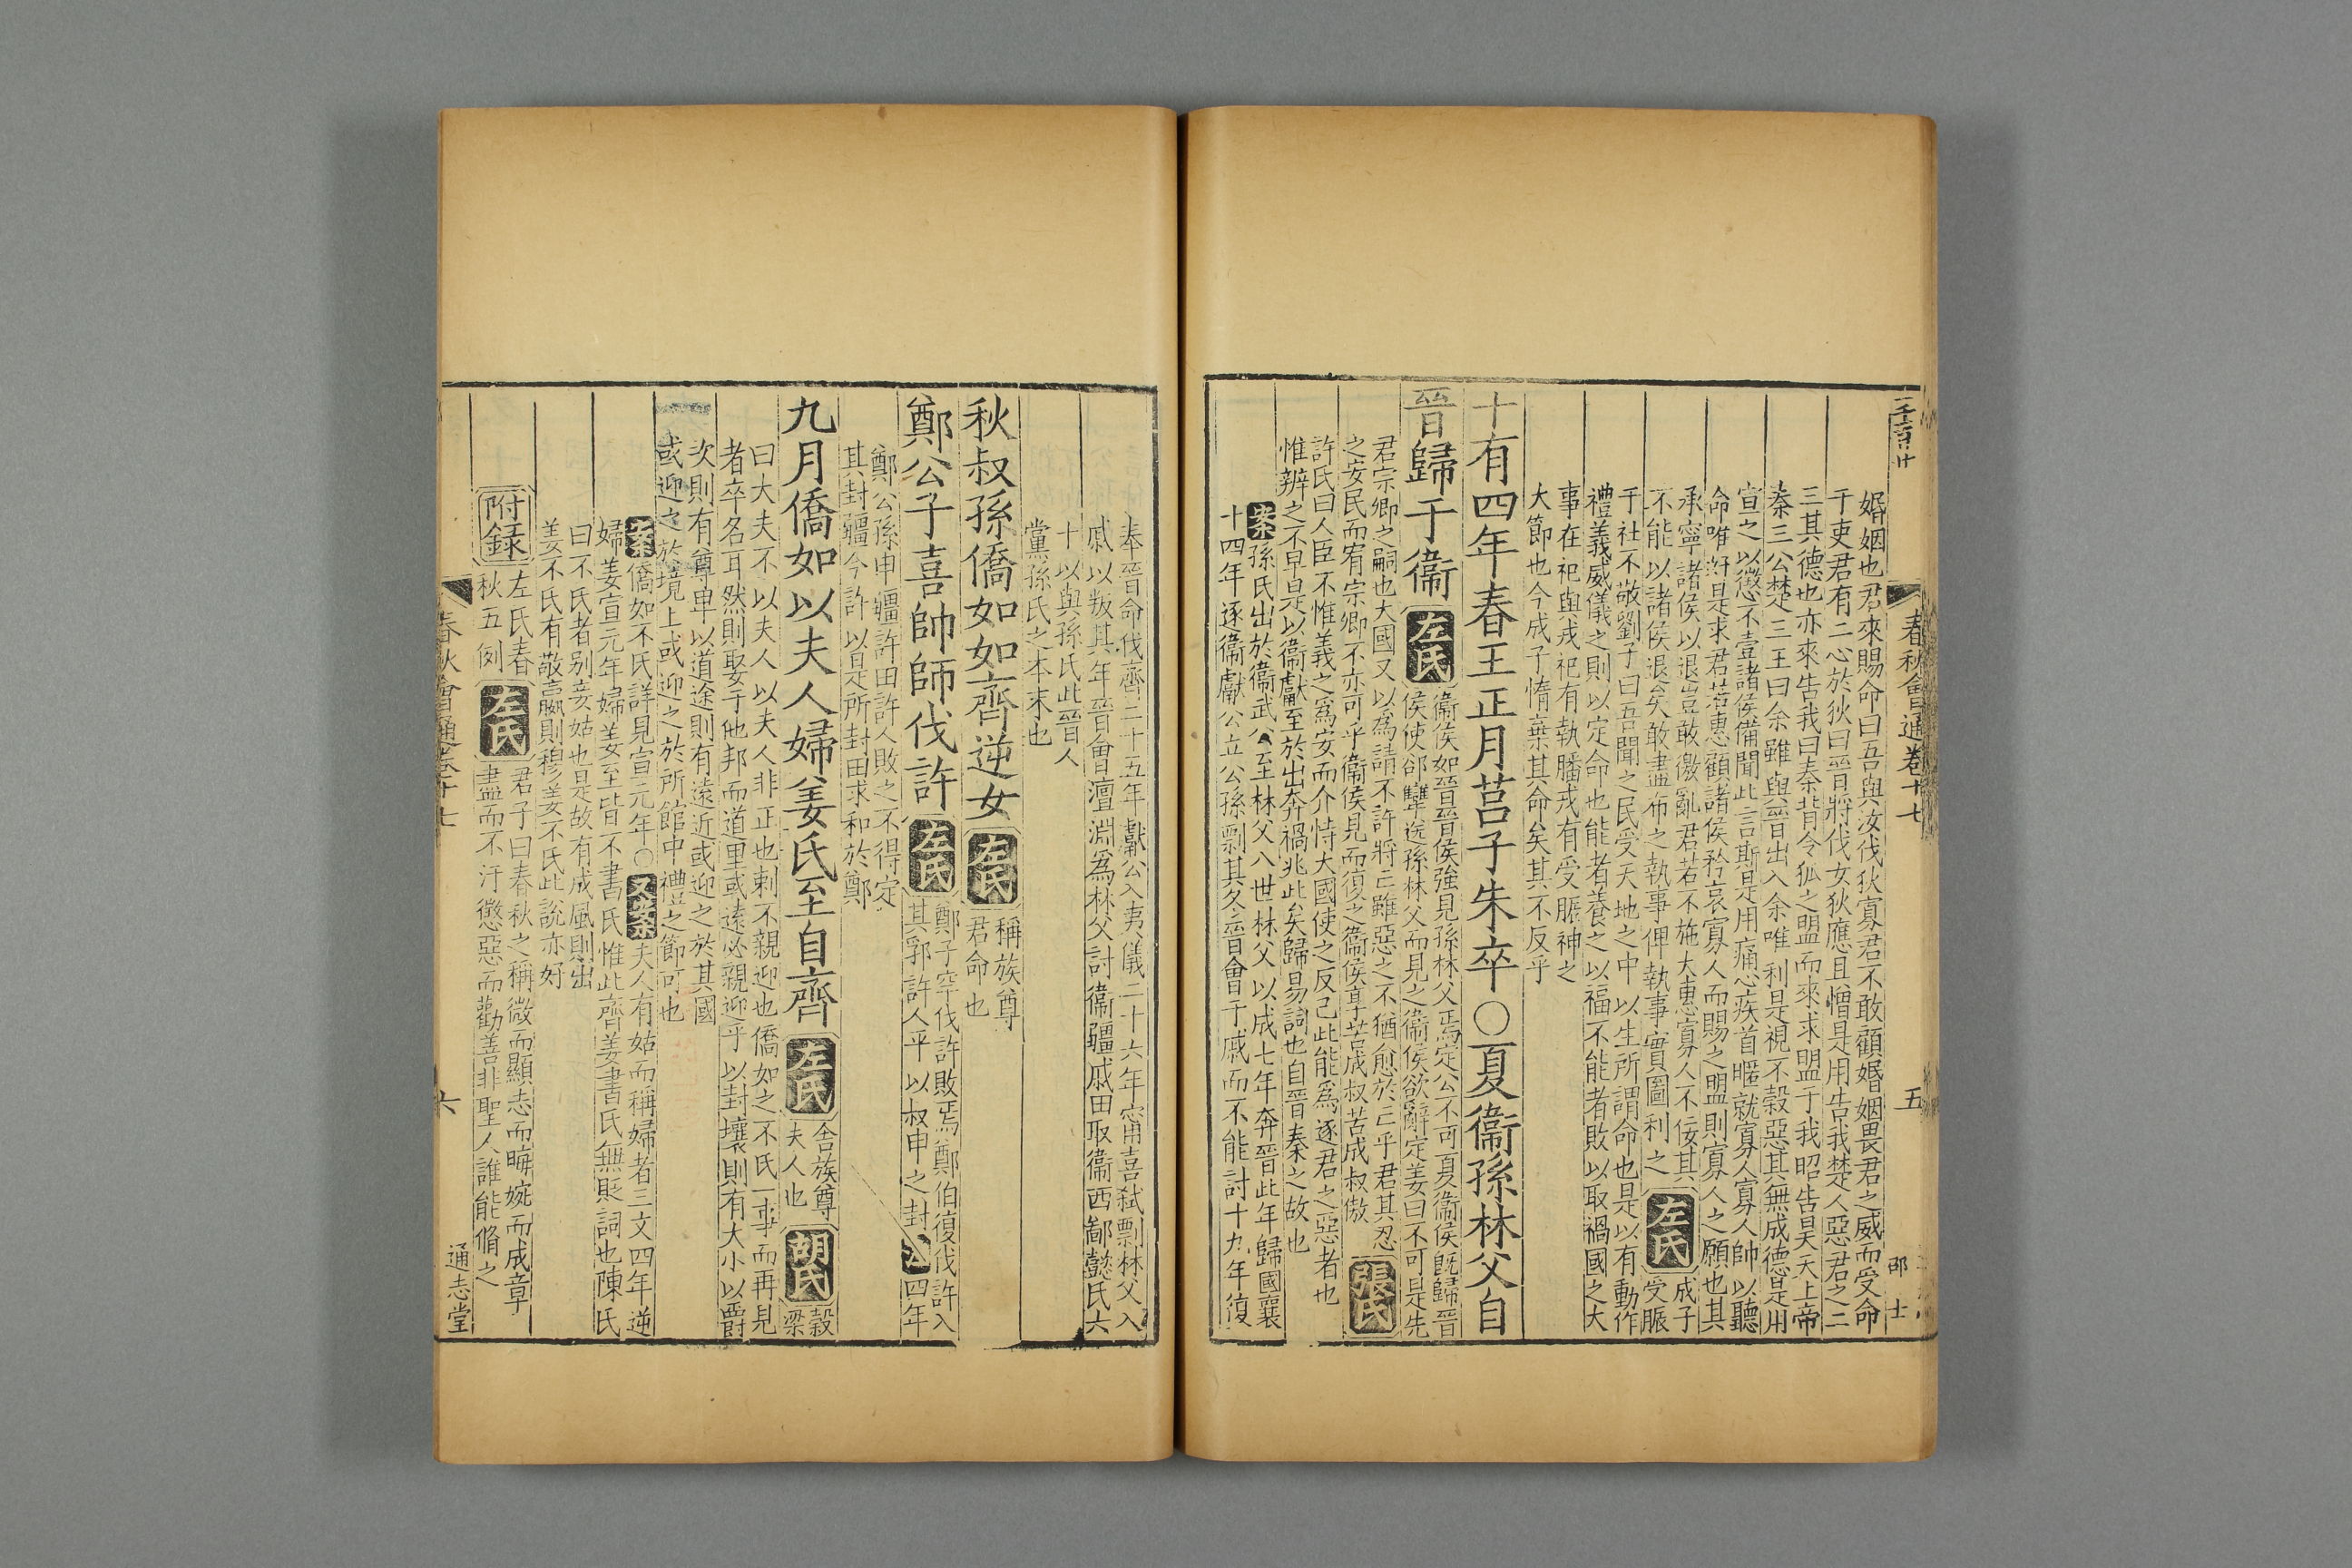 春秋會通卷十七
五
邵
士
婚姻也君來賜命曰吾與汝伐狄寡君不敢顧婚姻畏君之威而受命
于吏君有二心於狄曰晉將伐女狄應且憎是用告我楚人惡君之二
三其德也亦來告我曰秦背令狐之盟而來求盟于我昭告昊天上帝
秦三公楚三王曰余雖與晉出入余唯利是視不穀惡其無成德是用
宣之以懲不壹諸侯備聞此言斯是用痛心疾首暱就寡人寡人帥以聽
命唯好是求君若惠顧諸侯矜哀寡人而賜之盟則寡人之願也其
承寧諸侯以退豈敢徼亂君若不施大惠寡人不佞其
不能以諸侯退矣敢盡布之執事俾執事實圖利之
左氏
成子
受脤
于社不敬劉子曰吾聞之民受天地之中以生所謂命也是以有動作
禮義威儀之則以定命也能者養之以福不能者敗以取禍國之大
事在祀與戎祀有執膰戎有受脤神之
大節也今成子惰棄其命矣其不反乎
十有四年春王正月莒子朱卒○夏衞孫林父自
晉歸于衞
左氏
衞侯如晉晉侯強見孫林父焉定公不可夏衞侯旣歸晉
侯使郤犫送孫林父而見之衞侯欲辭定姜曰不可是先
君宗卿之嗣也大國又以爲請不許將亡雖惡之不猶愈於亡乎君其忍
之安民而宥宗卿不亦可乎衞侯見而復之衞侯享苦成叔苦成叔傲
張氏
許氏曰人臣不惟義之爲安而介恃大國使之反己此能爲逐君之惡者也
惟辨之不早是以衞獻至於出奔禍兆此矣歸易詞也自晉秦之故也
案
孫氏出於衞武公至林父八世林父以成七年奔晉此年歸國襄
十四年逐衞獻公立公孫剽其冬晉會于戚而不能討十九年復
奉晉命伐齊二十五年獻公入夷儀二十六年甯喜弑剽林父入
戚以叛其年晉會澶淵爲林父討衞疆戚田取衞西鄙懿氏六
十以與孫氏此晉人
黨孫氏之本末也
秋叔孫僑如如齊逆女
左氏
稱族尊
君命也
鄭公子喜帥師伐許
左氏
鄭子罕伐許敗焉鄭伯復伐許入
其郛許人平以叔申之封
四年
鄭公孫申疆許田許人敗之不得定
其封疆今許以是所封田求和於鄭
九月僑如以夫人婦姜氏至自齊
左氏
舍族尊
夫人也
胡氏
穀
梁
曰大夫不以夫人以夫人非正也剌不親迎也僑如之不氏一事而再見
者卒名耳然則娶于他邦而道里或遠必親迎乎以封壤則有大小以爵
次則有尊卑以道途則有遠近或迎之於其國
或迎之於境上或迎之於所館中禮之節可也
案
僑如不氏詳見宣元年○
又案
夫人有姑而稱婦者三文四年逆
婦姜宣元年婦姜至皆不書氏惟此齊姜書氏無貶詞也陳氏
曰不氏者别妾姑也是故有成風則出
姜不氏有敬嬴則穆姜不氏此說亦好
附錄
左氏春
秋五例
左氏
君子曰春秋之稱微而顯志而晦婉而成章
盡而不汙懲惡而勸善非聖人誰能脩之
春秋會通卷十七
六
通志堂